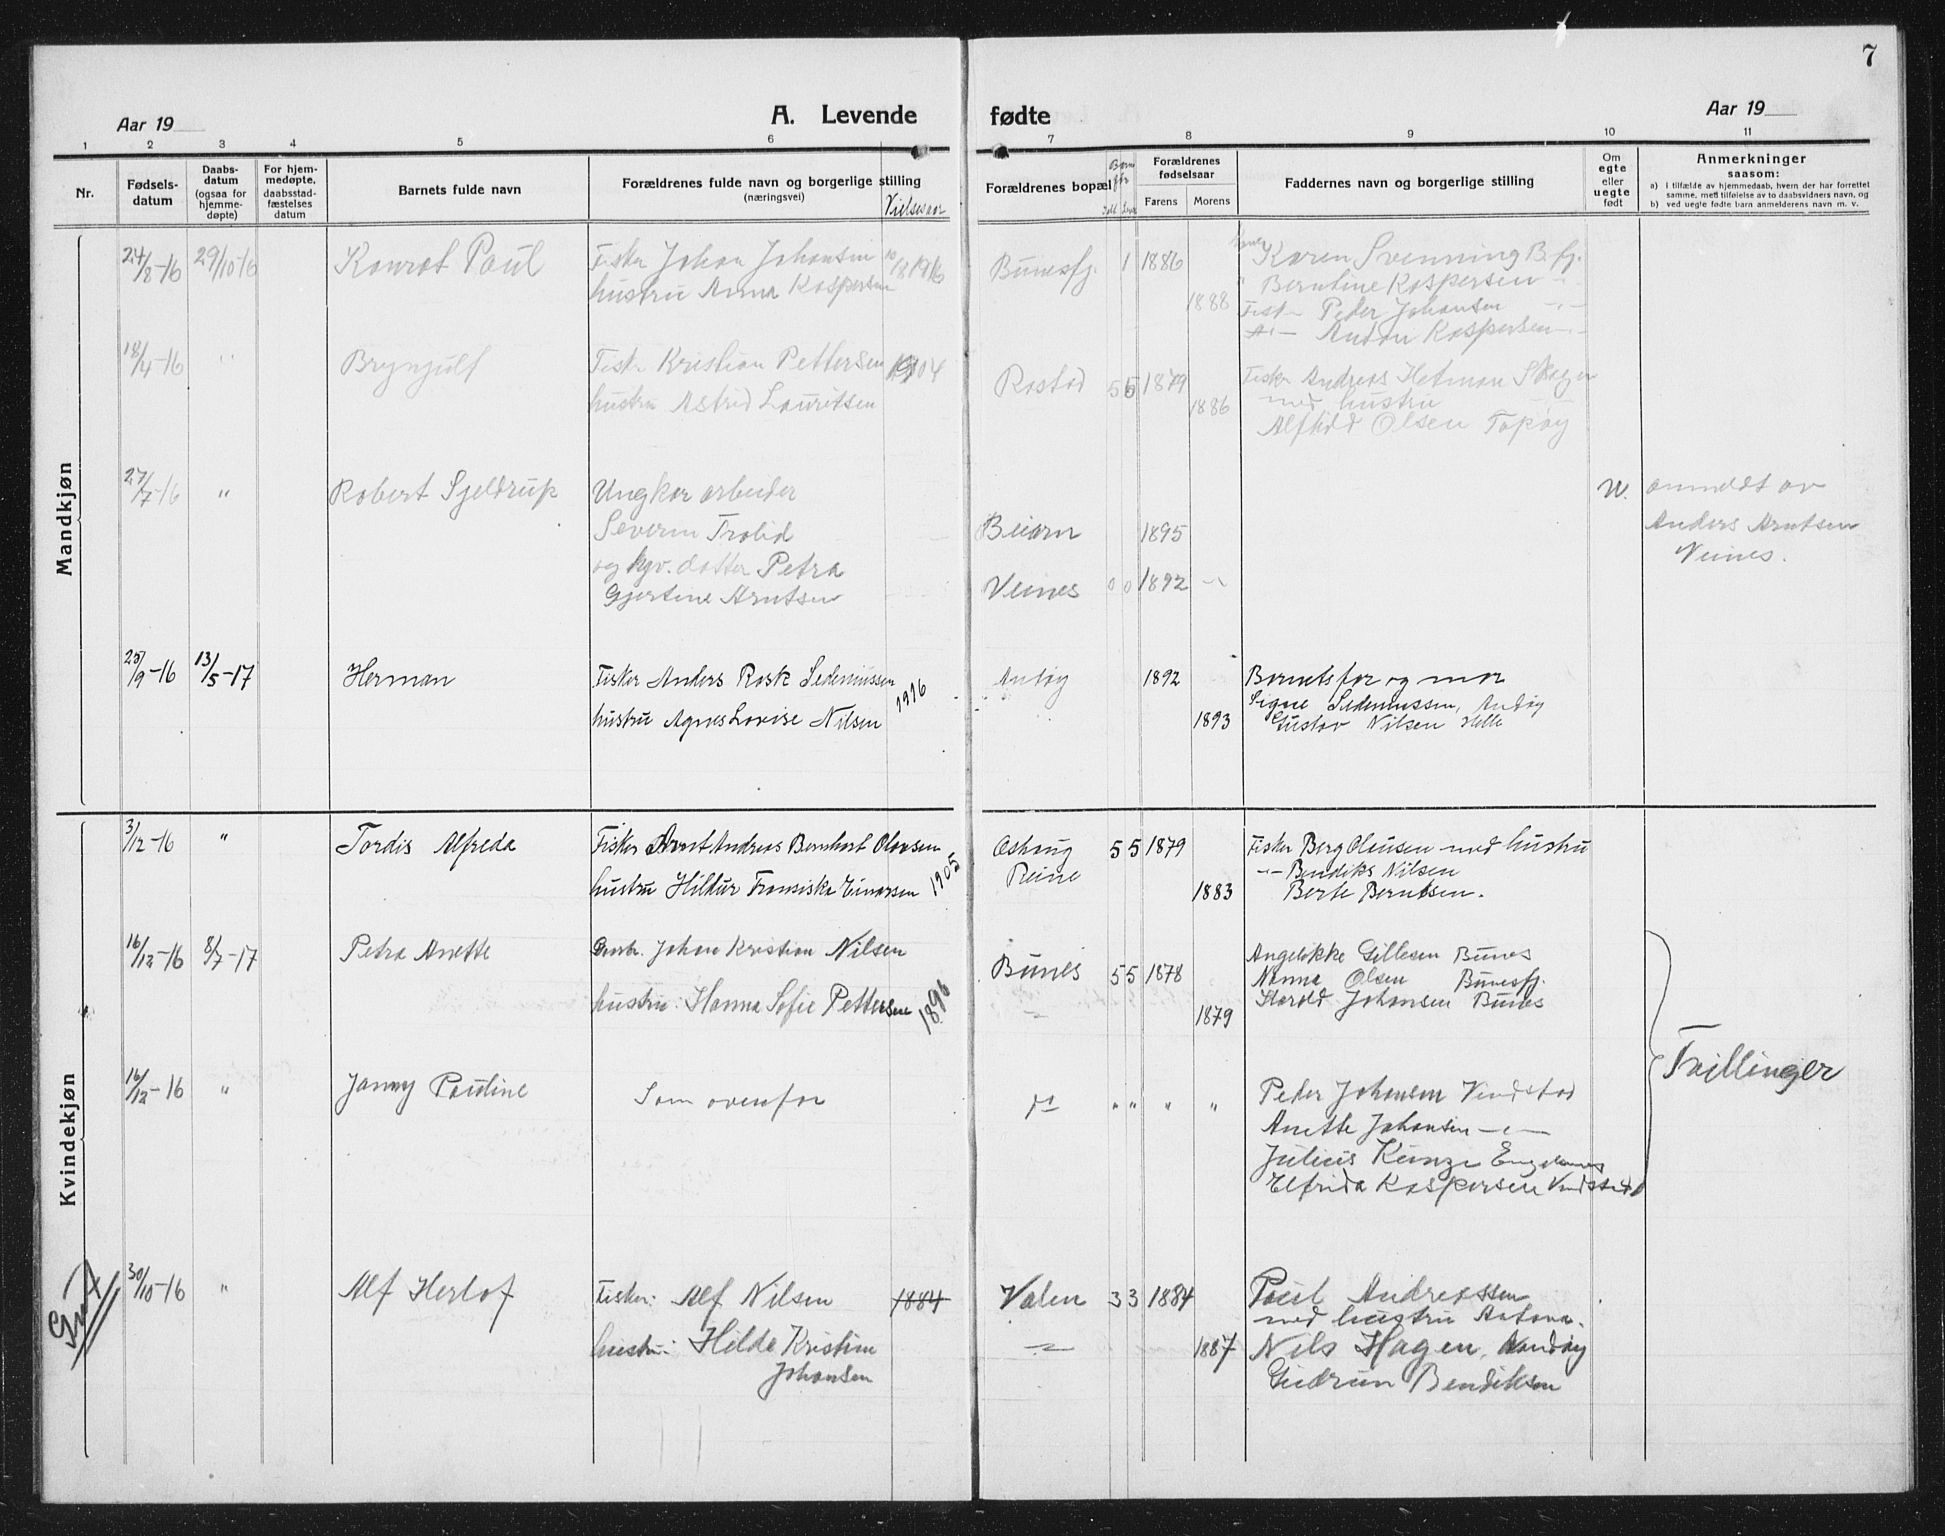 7
Aar 19
A. Levende fødte
Aar 19
1 2 3 4 5 6 7 8 9 10 11
Nr.
Fødsels-datum
Daabs-datum (ogsaa for hjemme-døpte)
For hjem-medøpte, daabsstad-fæstelses datum
Barnets fulde navn
Forældrenes fulde navn og borgerlige stilling
(næringsvei)
Vielsesaar
Forældrenes bopæl
Forældrenes fødselsaar
Farens Morens
Faddernes navn og borgerlige stilling
Om egte eller uegte født
Anmerkninger
saasom:
a) i tilfælde av hjemmedaab, hvem der har forrettet
samme, med tilføielse av to daabsvidners navn, og
b) ved uegte fødte barn anmelderens navn m. v.
Mandkjøn
24/8-16 29/10-16 Konrat Paul Fisker Johan Johansen 1916 Bunesfj. 1 1886 Karen Svenning B.fj.
hustru Anna Kaspersen 1888 Berntine Kaspersen
Fisker Peder Johansen
Anton Kaspersen
18/4-16 " Brynjulf Fisker Kristian Pettersen 1904 Rostad 5 5 1879 Fisker Andreas Hetman
hustru Astrid Lauritsen 1886 med hustru
Alfhild Olsen Topøy
27/7-16 " Robert Sjeldrup Ungkar arbeider U. anmeldt av
Severin Trolid Beiarn 1895 Anders Arntsen
og hjv. datter Petra Veines 0 0 1892 Veines.
Gjertine Arntsen
25/9-16 13/5-17 Herman Fisker Anders Rask Sedeniussen 1916 Andøy 1892 Barnets far og mor
hustru Agnes Lovise Nilsen 1893 Signe Sedeniussen, Andøy
Gustav Nilsen Helle
Kvindekjøn
3/12-16 " Tordis Alfreda Fisker Arnt Andreas Bernhart Olavsen 1905 Reine 5 5 1879 Fisker Berg Olausen med hustru
hustru Hildur Fransiska Einarsen 1883 Bendiks Nilsen
Berte Berntsen.
16/12-16 8/7-17 Petra Anette Johan Kristian Nilsen 1896 Bunes 5 5 1878 Angelikke Gillesen Bunes
hustru: Hanna Sofie Pettersen 1879 Nanna Olsen Bunesfj.
Harald Johansen Bunes
16/12-16 " Janny Pauline Som ovenfor " " " " Peder Johansen Vindstad
Anette Johansen
Julius Kunze
Elfrida Kaspersen Vindstad
Tvillinger
30/10-16 " Alf Herlof Fisker: Alf Nilsen 1884 Valen 3 3 1884 Paul Andreassen
hustru: Hilda Kristine 1887 med hustru Antona.
Johansen Nils Hagen,
Gudrun Bendiksen
Gut